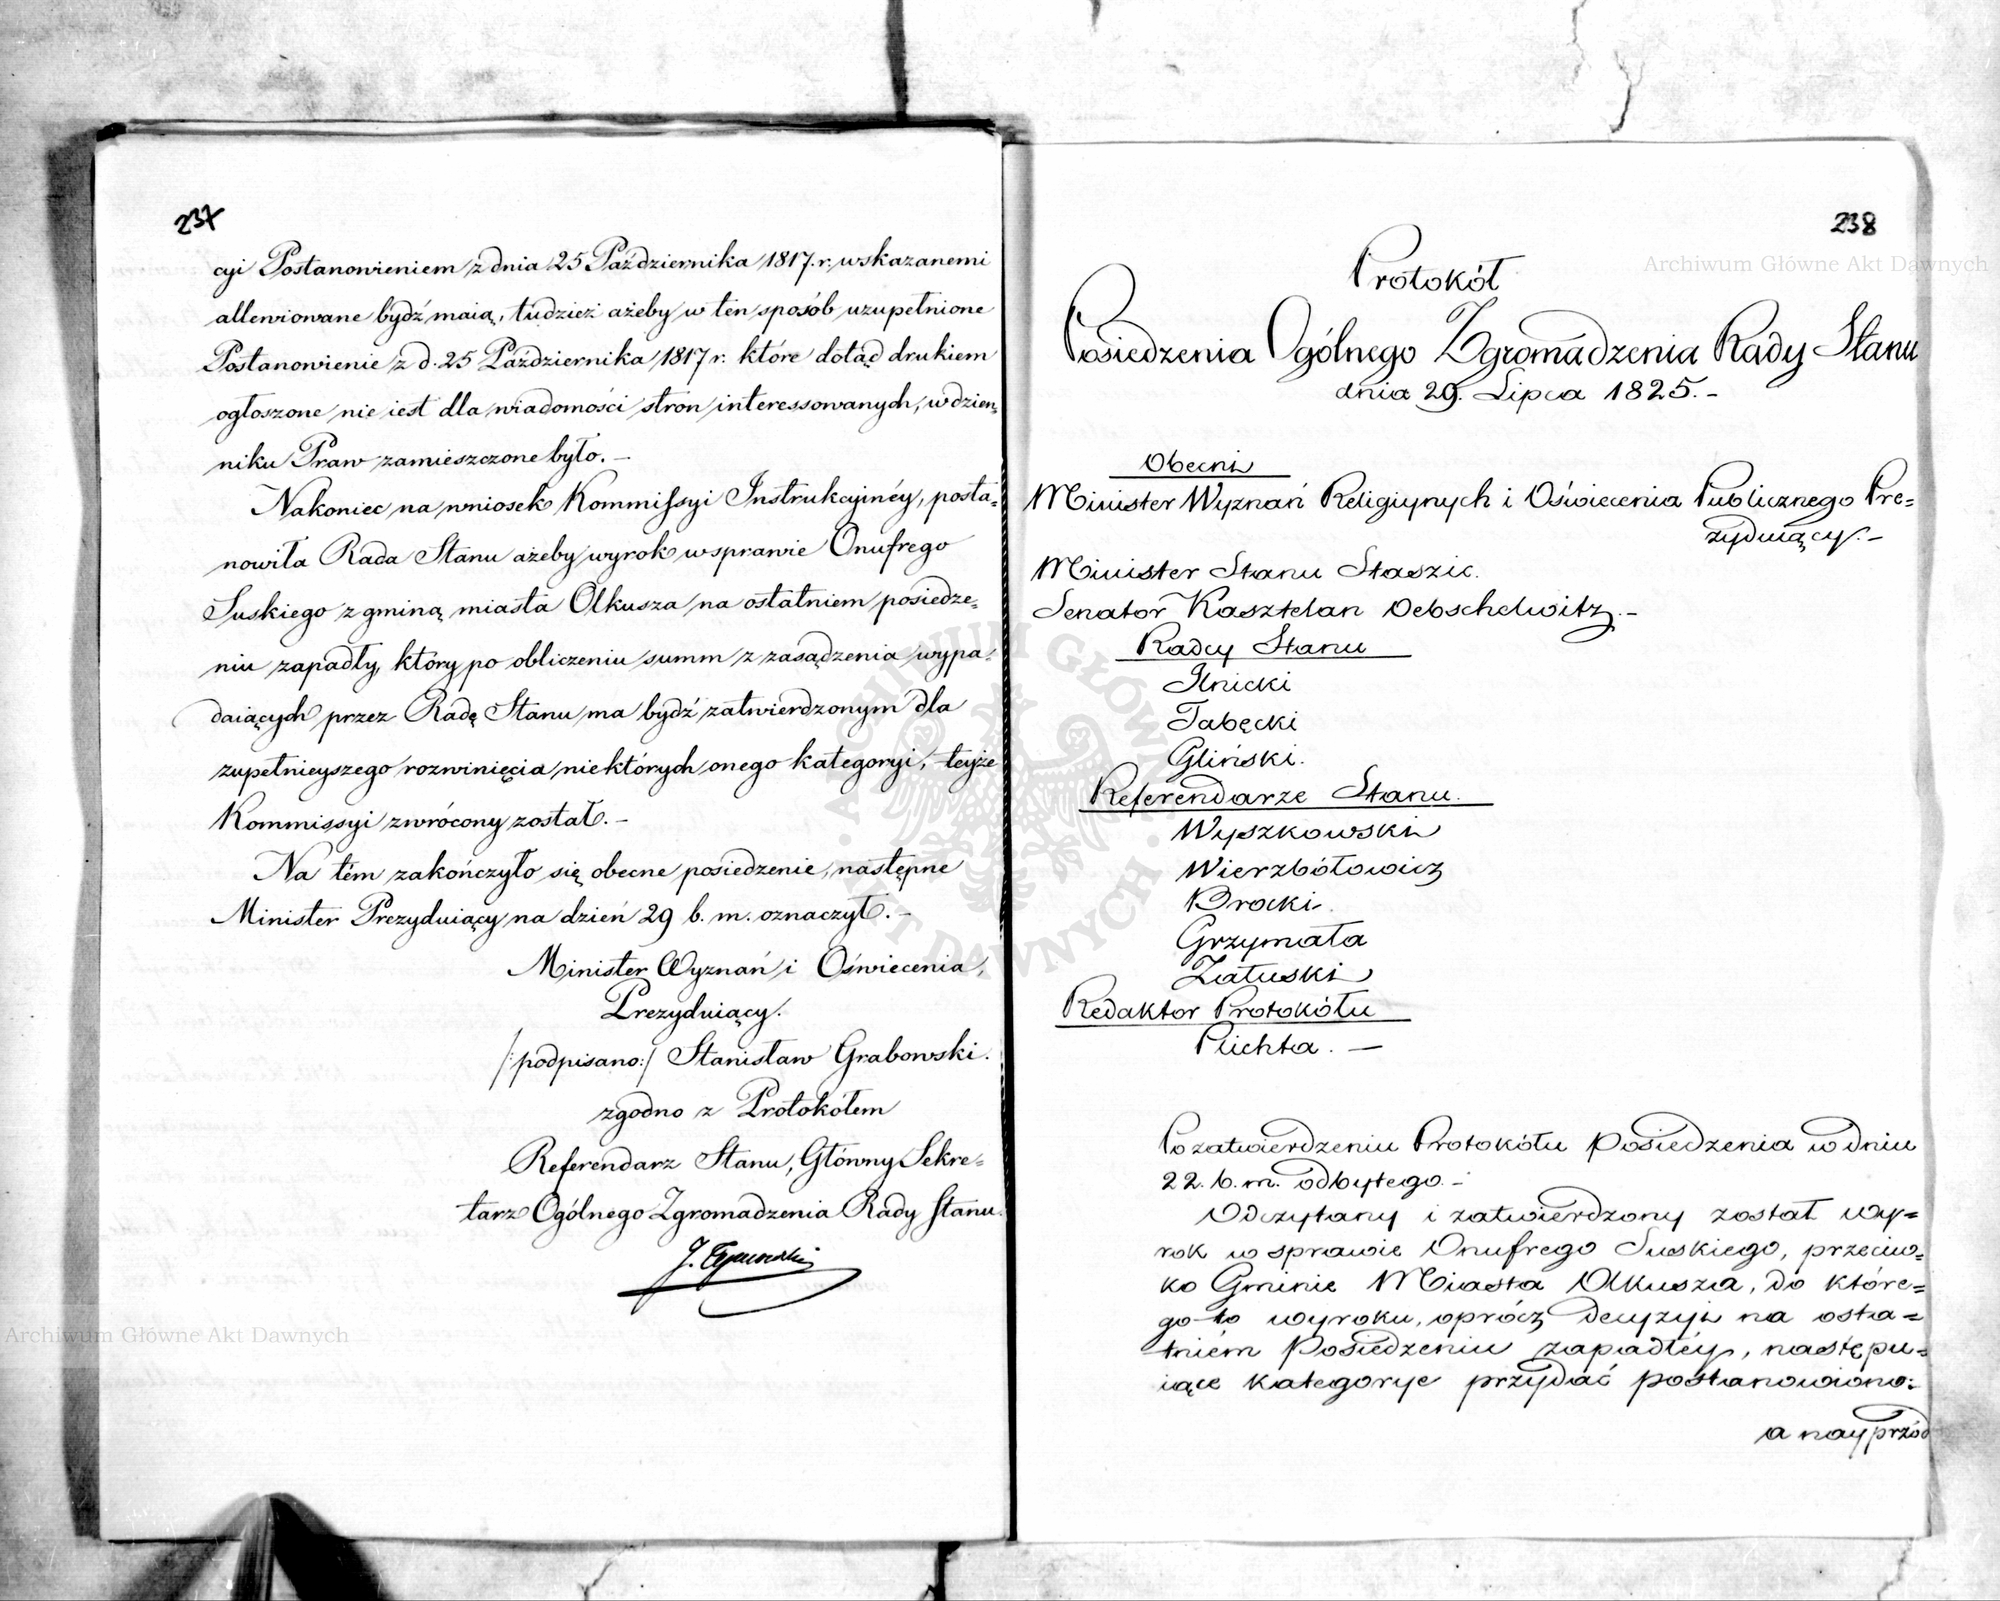 237
cyi Postanowieniem z dnia 25 Października 1817. r. wskazanemi
allewiowane bydź maią, tudzież ażeby w ten sposób uzupełnione
Postanowienie z d. 25 Października 1817 r. które dotąd drukiem
ogłoszone nie iest dla wiadomości stron interessowanych, w dzien=
niku Praw zamieszczone było. –
Nakoniec na wniosek Kommissyi Instrukcyinéy, posta=
nowiła Rada Stanu ażeby wyrok w sprawie Onufrego
Suskiego z gminą miasta Olkusza na ostatniem posiedze=
niu zapadły, który po obliczeniu summ z zasądzenia wypa=
daiących przez Radę Stanu ma bydź zatwierdzonym dla
zupełnieyszego rozwinięcia niektórych onego kategoryi, teyże
Kommissyi zwrócony został. –
Na tém zakończyło się obecne posiedzenie, następne
Minister Prezyduiący na dzień 29 b. m. oznaczył. –
Minister Wyznań i Oświecenia,
Prezyduiący.
/:podpisano:/ Stanisław Grabowski.
zgodno z Protokółem
Referendarz Stanu, Główny Sekre=
tarz Ogólnego Zgromadzenia Rady Stanu.
J.
238
Protokół
Posiedzenia Ogólnego Zgromadzenia Rady Stanu
dnia 29. Lipca 1825. –
Obecni
Minister Wyznań Religiynych i Oświecenia Publicznego Pre=
zyduiący. –
Minister Stanu Staszic.
Senator Kasztelan Debschelwitz. –
Radcy Stanu
Ilnicki
Tabęcki
Gliński.
Referendarze Stanu.
Wyszkowski
Wierzbółowicz
Brocki.
Grzymała
Załuski
Redaktor Protokółu
Plichta. —
Po zatwierdzeniu Protokółu Posiedzenia w dniu
22. b. m. odbytego. –
Odczytany i zatwierdzony został wy=
rok w sprawie Onufrego Suskiego, przeciw=
ko Gminie Miasta Olkusza, do które=
go to wyroku, oprócz decyzyi na osta=
tniém Posiedzeniu zapadłéy, następu=
iące kategorye przydać postanowiono:
a nayprzód
Archiwum Główne Akt Dawnych
Archiwum Główne Akt Dawnych
ARCHIWUM GŁÓWNE AKT DAWNYCH